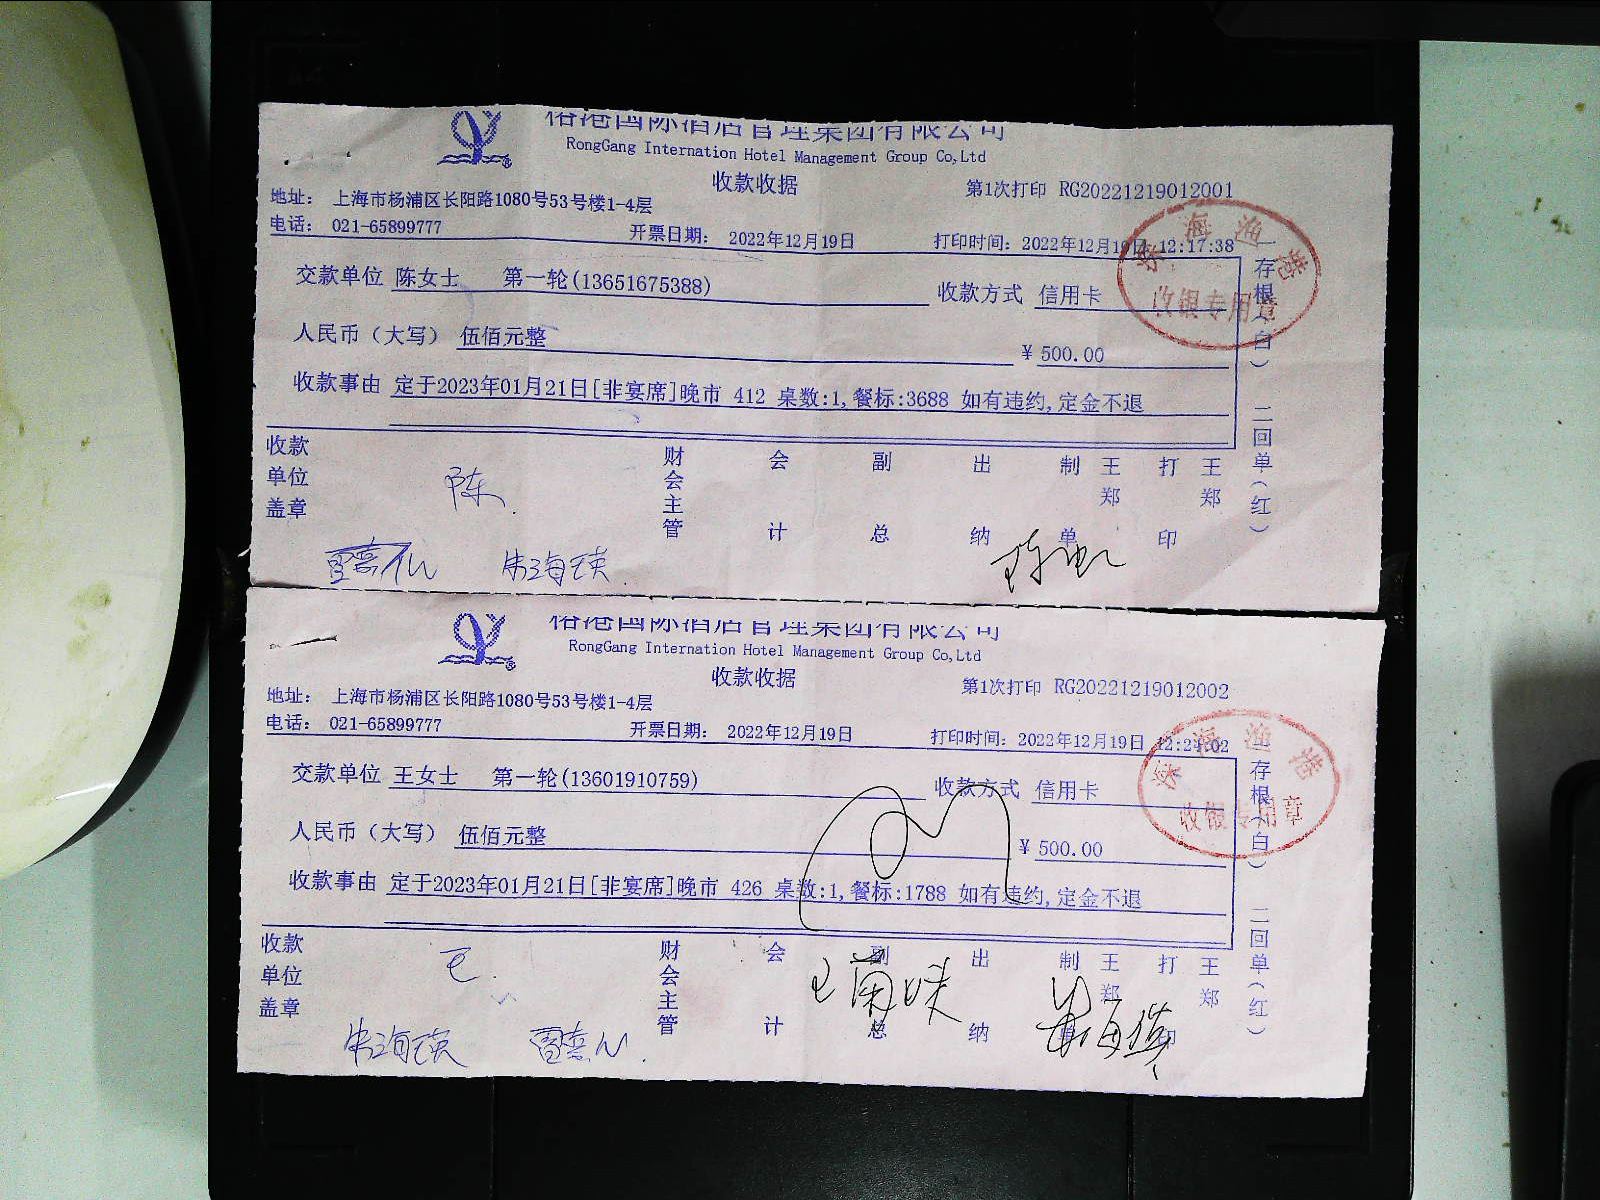 国际酒店管理集团有限公司
RongGang Internation Hotel Management Group Co,Ltd
收款收据
第1次打印 RG20221219012001
地址: 上海市杨浦区长阳路1080号53号楼1-4层
电话: 021-65899777
开票日期: 2022年12月19日
打印时间: 2022年12月19日 12:17:38
交款单位 陈女士 第一轮(13651675388)
收款方式 信用卡
人民币（大写） 伍佰元整
¥ 500.00
收款事由 定于2023年01月21日[非宴席]晚市 412 桌数:1,餐标:3688 如有违约,定金不退
一存根(白) 二回单(红)
珠海渔港
收银专用章
收款单位盖章
财会主管
会计
副总
出纳
制单 王郑
打印 王郑
陈
朱海瑛
国际酒店管理集团有限公司
RongGang Internation Hotel Management Group Co,Ltd
收款收据
第1次打印 RG20221219012002
地址: 上海市杨浦区长阳路1080号53号楼1-4层
电话: 021-65899777
开票日期: 2022年12月19日
打印时间: 2022年12月19日
交款单位 王女士 第一轮(13601910759)
收款方式 信用卡
人民币（大写） 伍佰元整
¥ 500.00
收款事由 定于2023年01月21日[非宴席]晚市 426 桌数:1,餐标:1788 如有违约,定金不退
一存根(白) 二回单(红)
珠海渔港
收银专用章
收款单位盖章
财会主管
会计
副总
出纳
制单 王郑
打印 王郑
王
朱海瑛